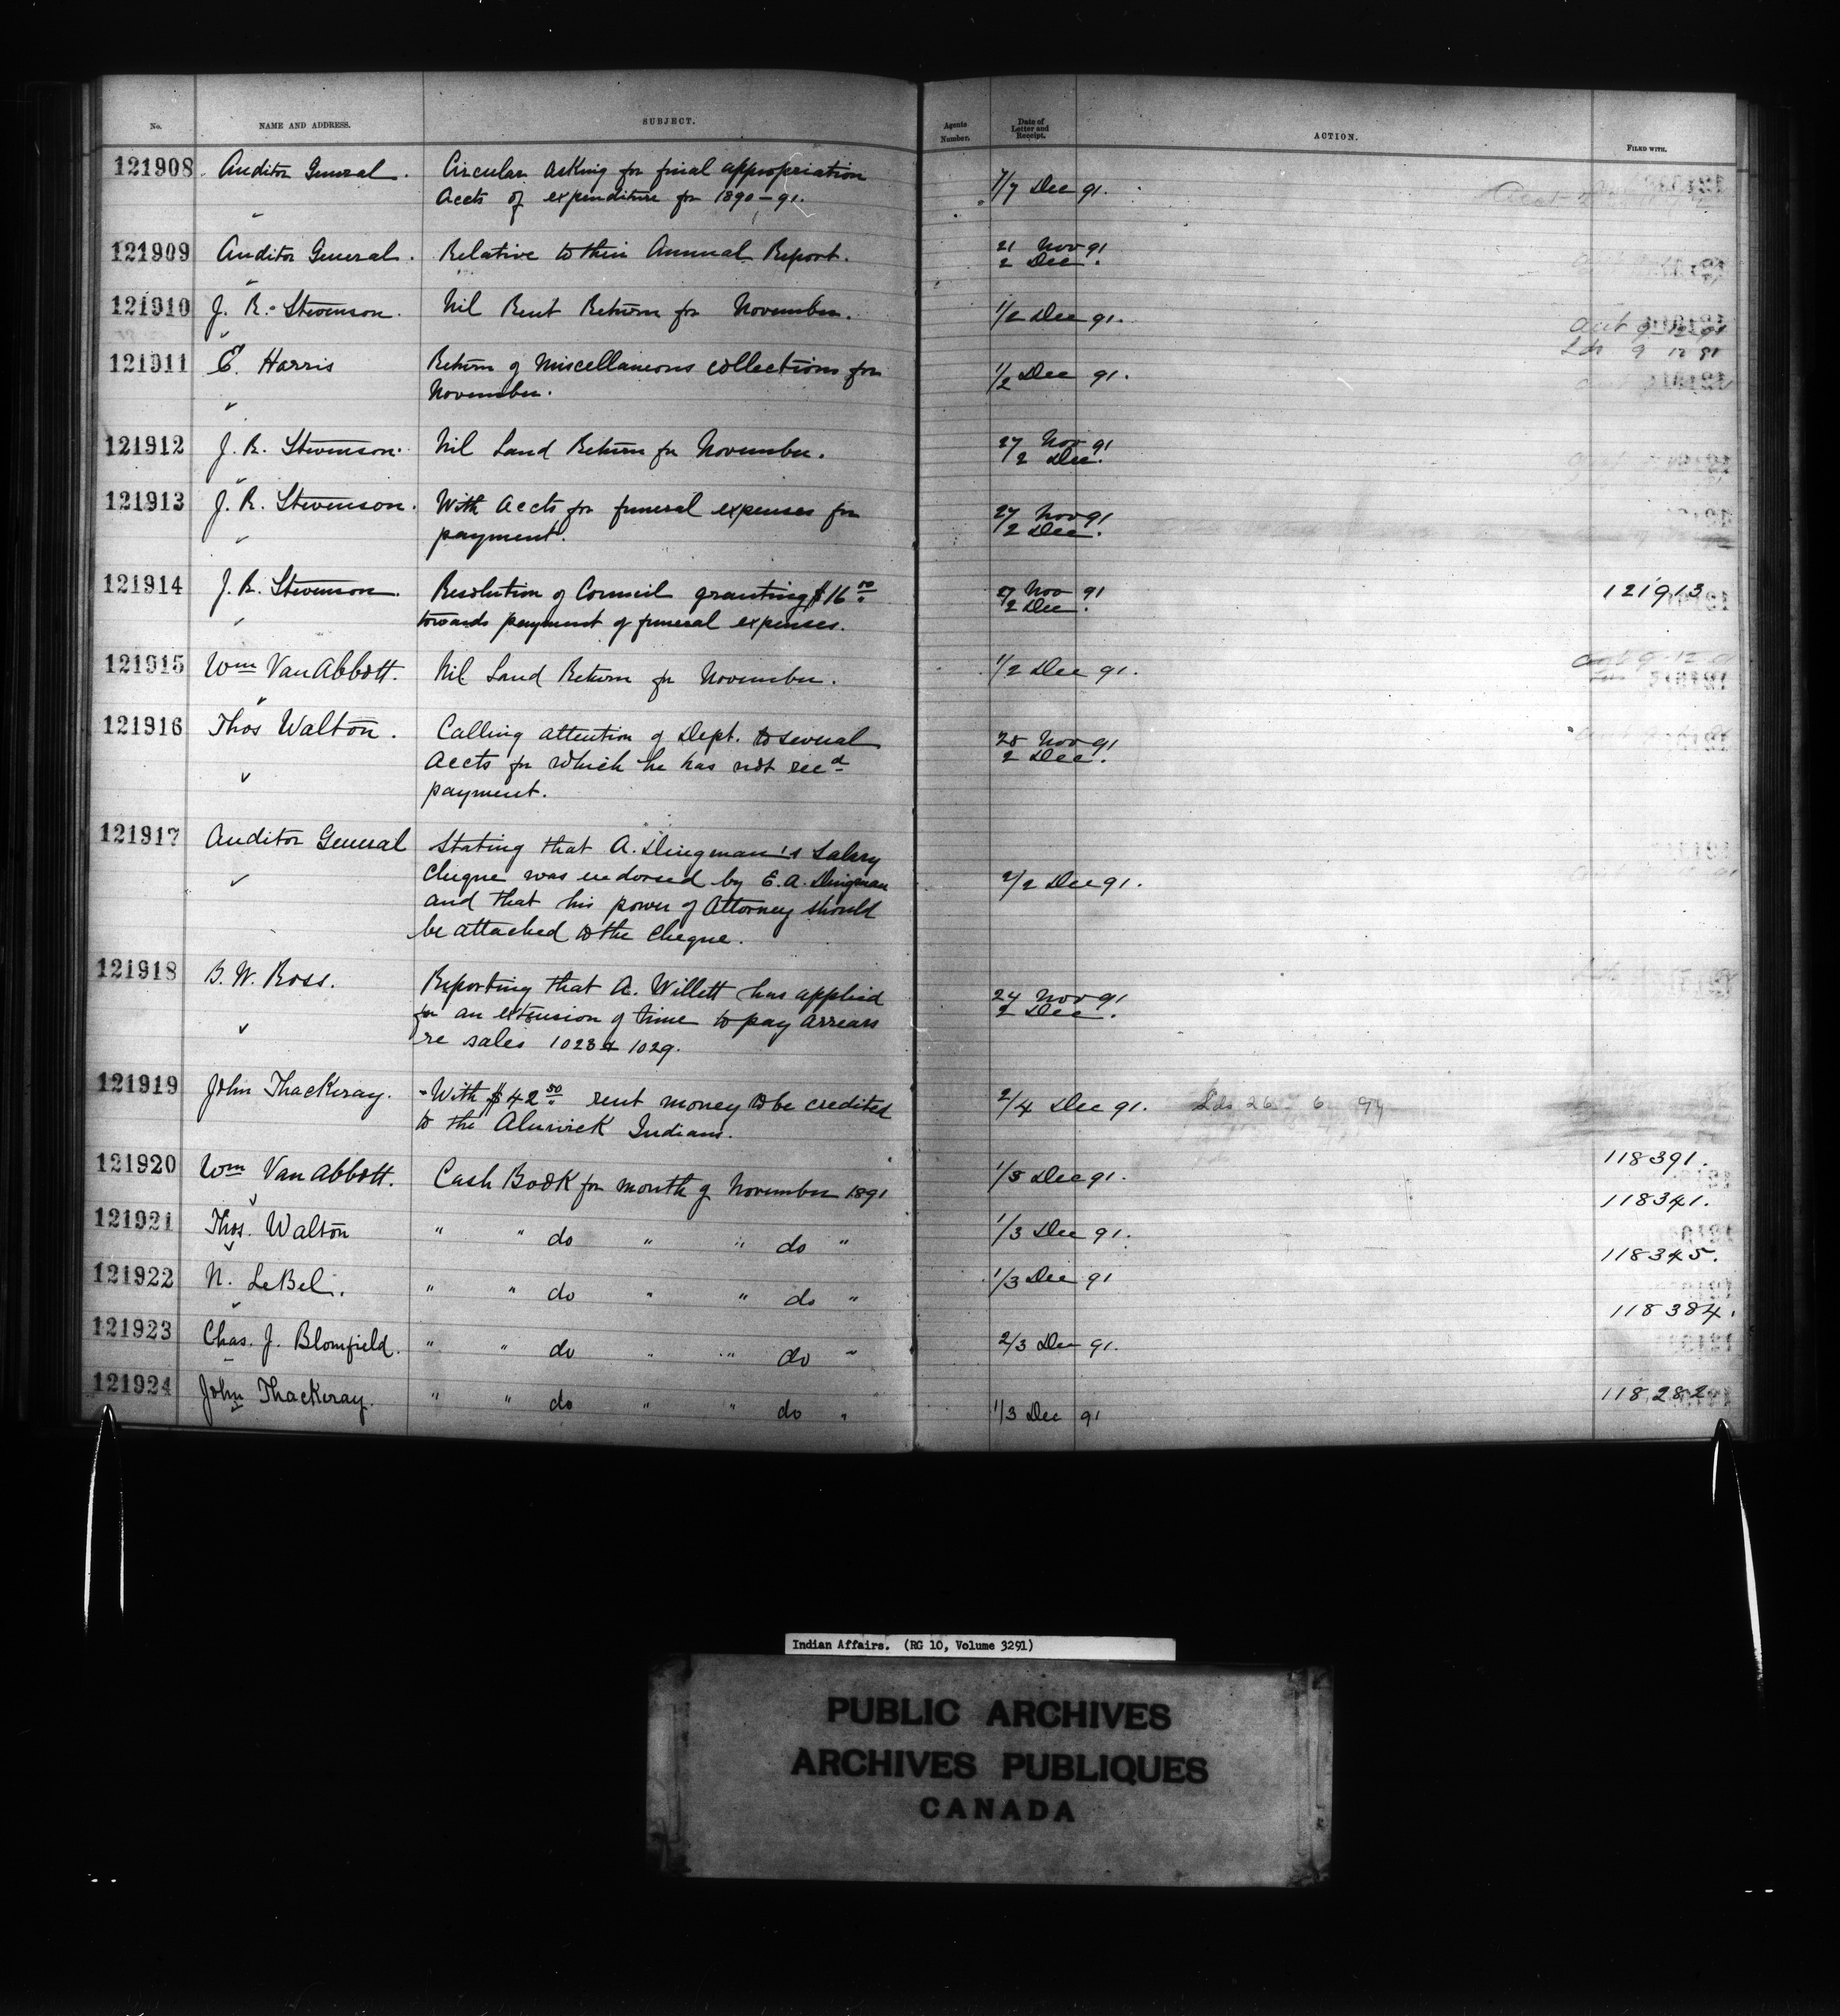 No. NAME AND ADDRESS. SUBJECT. Agents Number. Date of Letter and Receipt. ACTION. FILED WITH.
121908 Auditor General. Circular asking for final appropriation 1/7 Dec 91.
Accts of expenditure for 1890-91.
121909 Auditor General. Relative to their Annual Report. 21 Nov 91
2 Dec.
121910 J. R. Stevenson. Nil Rent Return for November. 1/2 Dec 91.
121911 E. Harris Return of Miscellaneous collections for 1/2 Dec 91.
November.
121912 J. R. Stevenson. Nil Land Return for November. 27 Nov 91
2 Dec.
121913 J. R. Stevenson. With accts for funeral expenses for 27 Nov 91
payment. 2 Dec.
121914 J. R. Stevenson. Resolution of Council granting $16 00 27 Nov 91 121913
towards payment of funeral expenses. 2 Dec.
121915 Wm Van Abbott. Nil Land Return for November. 1/2 Dec 91.
121916 Thos Walton. Calling attention of Dept. to several 28 Nov 91
Accts for which he has not recd 2 Dec.
payment.
121917 Auditor General Stating that A. Dingman's Salary
Cheque was endorsed by E. A. Dingman 2/2 Dec 91.
and that his power of Attorney should
be attached to the Cheque.
121918 B. W. Ross. Reporting that A. Willett has applied 24 Nov 91
for an extension of time to pay arrears 2 Dec.
re sales 1028 & 1029.
121919 John Thackeray. With $42 50 rent money to be credited 2/4 Dec 91. Lds 26 6 94
to the Alnwick Indians.
121920 Wm Van Abbott. Cash Book for month of November 1891 1/3 Dec 91. 118391.
121921 Thos. Walton " " do " " do " 1/3 Dec 91. 118341.
121922 N. LeBel. " " do " " do " 1/3 Dec 91 118345.
121923 Chas. J. Blomfield. " " do " " do " 2/3 Dec 91. 118384.
121924 John Thackeray. " " do " " do " 1/3 Dec 91 118282
Indian Affairs. (RG 10, Volume 3291)
PUBLIC ARCHIVES
ARCHIVES PUBLIQUES
CANADA